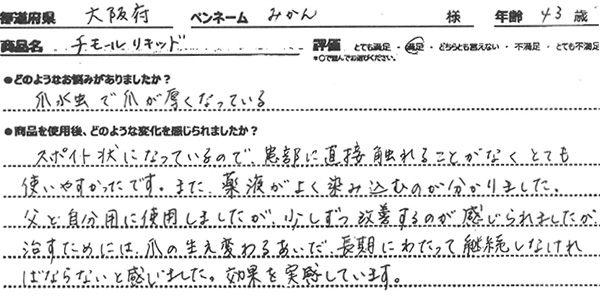 都道府県 大阪府 ペンネーム みかん 様 年齢 43 歳
商品名 チモールリキッド 評価 とても満足・満足・どちらとも言えない・不満足・とても不満足
*○で囲んでお選びください。
●どのようなお悩みがありましたか？
爪水虫で爪が厚くなっている
●商品を使用後、どのような変化を感じられましたか？
スポイト状になっているので、患部に直接触れることがなくとても
使いやすかったです。また、薬液がよく染み込むのが分かりました。
父と自分用に使用しましたが、少しずつ改善するのが感じられましたが
治すためには、爪の生え変わるあいだ、長期にわたって継続しなけれ
ばならないと感じました。効果を実感しています。